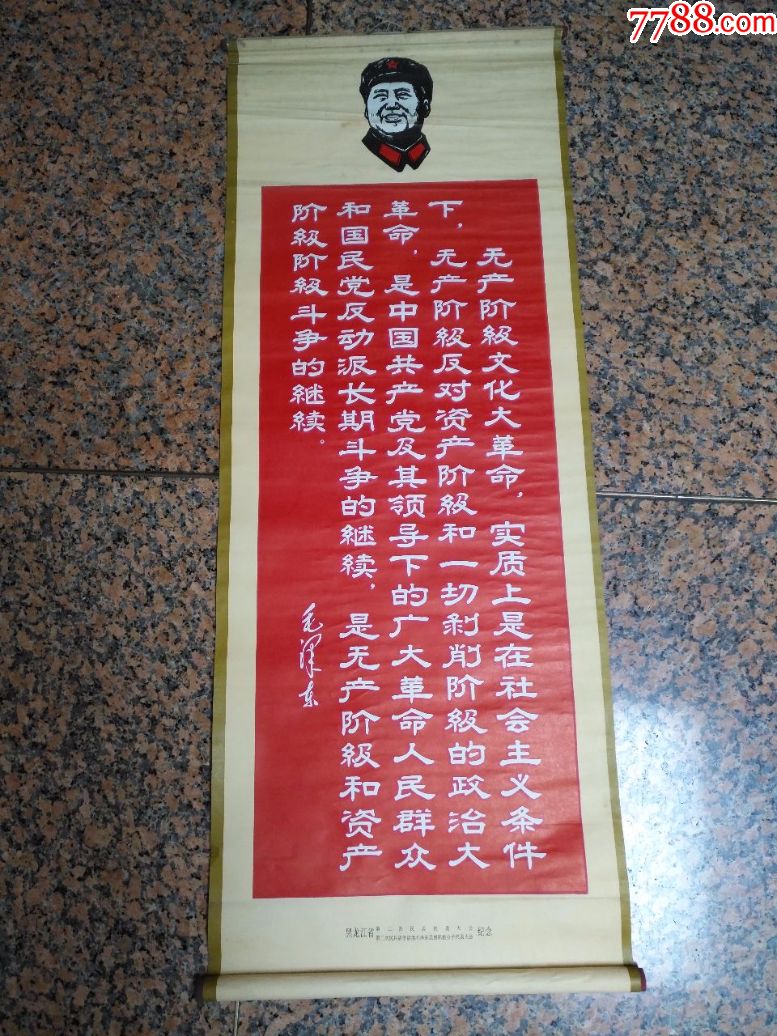 7788.com
无产阶級文化大革命，实质上是在社会主义条件
下，无产阶級反对资产阶級和一切剥削阶級的政治大
革命，是中国共产党及其领导下的广大革命人民群众
和国民党反动派长期斗争的继续，是无产阶級和资产
阶級阶級斗争的继续。
毛泽东
黑龙江省
纪念